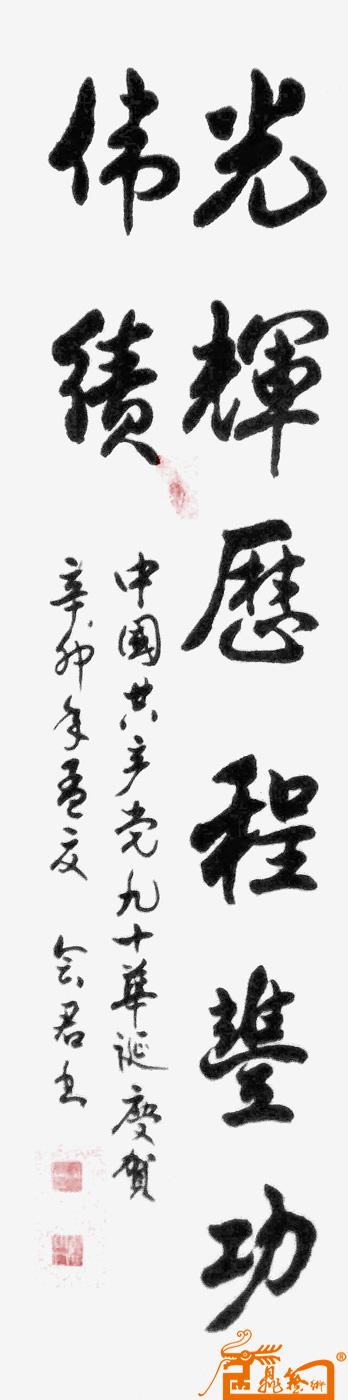 光輝歷程豐功
伟績
中國共产党九十華诞慶賀
辛卯年孟夏 会君书